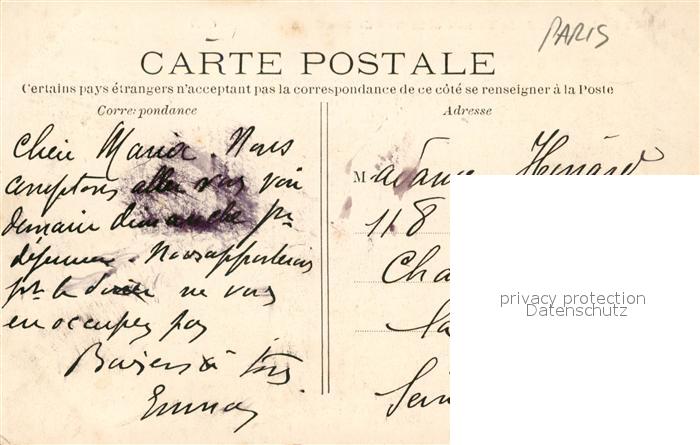 PARIS
CARTE POSTALE
Certains pays étrangers n'acceptant pas la correspondance de ce côté se renseigner à la Poste
Correspondance
Adresse
Chère Maria. Nous
comptons aller vous voir
demain dimanche pr
déjeuner. Nous apporterons
pr le ne vous
en occupez pas
Baisers à tous
Emma
Madame Hénard
118
Cha
Sein
privacy protection
Datenschutz